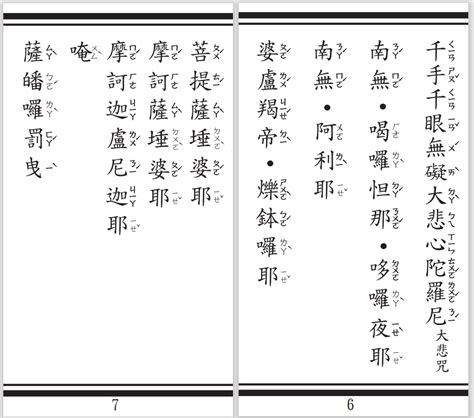 千手千眼無礙大悲心陀羅尼大悲咒
南無•喝囉怛那•哆囉夜耶
南無•阿利耶
婆盧羯帝•爍鉢囉耶
6
菩提薩埵婆耶
摩訶薩埵婆耶
摩訶迦盧尼迦耶
唵
薩皤囉罰曳
7